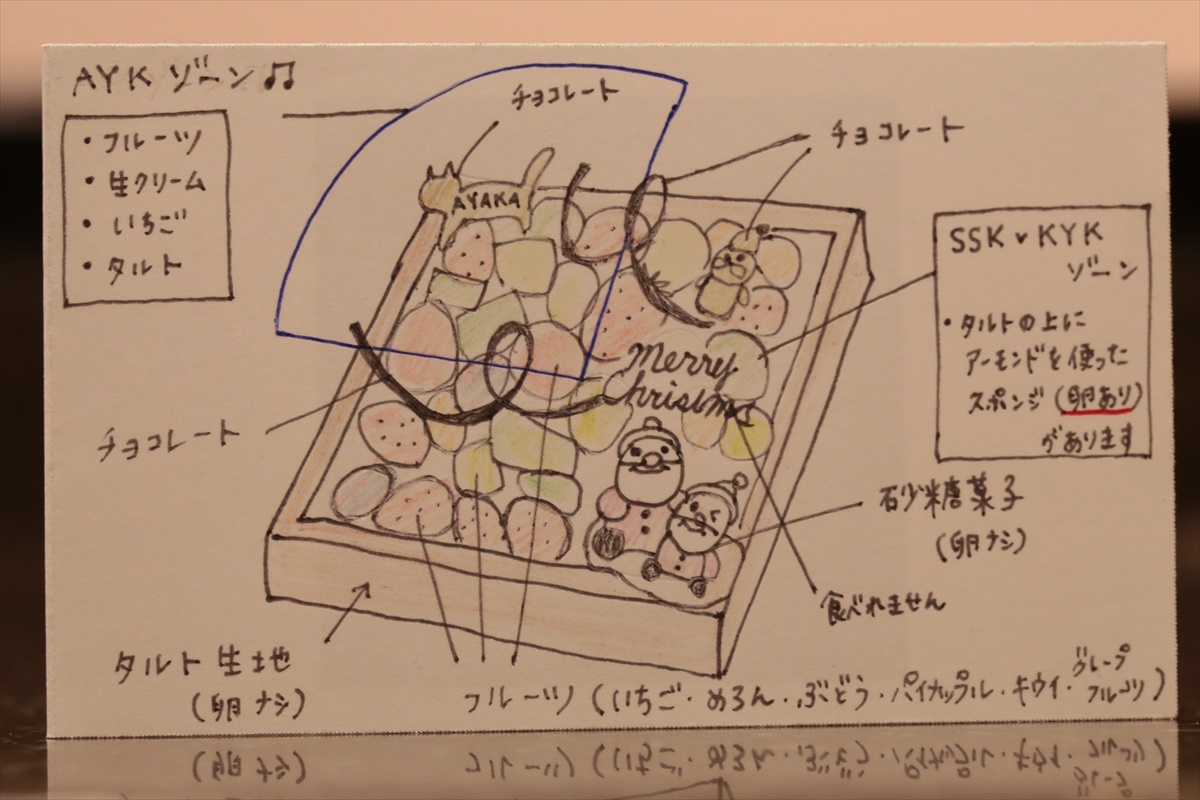 AYK ゾーン♫
・フルーツ
・生クリーム
・いちご
・タルト
チョコレート
チョコレート
AYAKA
SSK ♥ KYK
ゾーン
・タルトの上に
アーモンドを使った
スポンジ(卵あり)
があります
Merry
Christmas
チョコレート
砂糖菓子
(卵ナシ)
食べれません
タルト生地
(卵ナシ)
フルーツ(いちご・めろん・ぶどう・パイナップル・キウイ・グレープフルーツ)